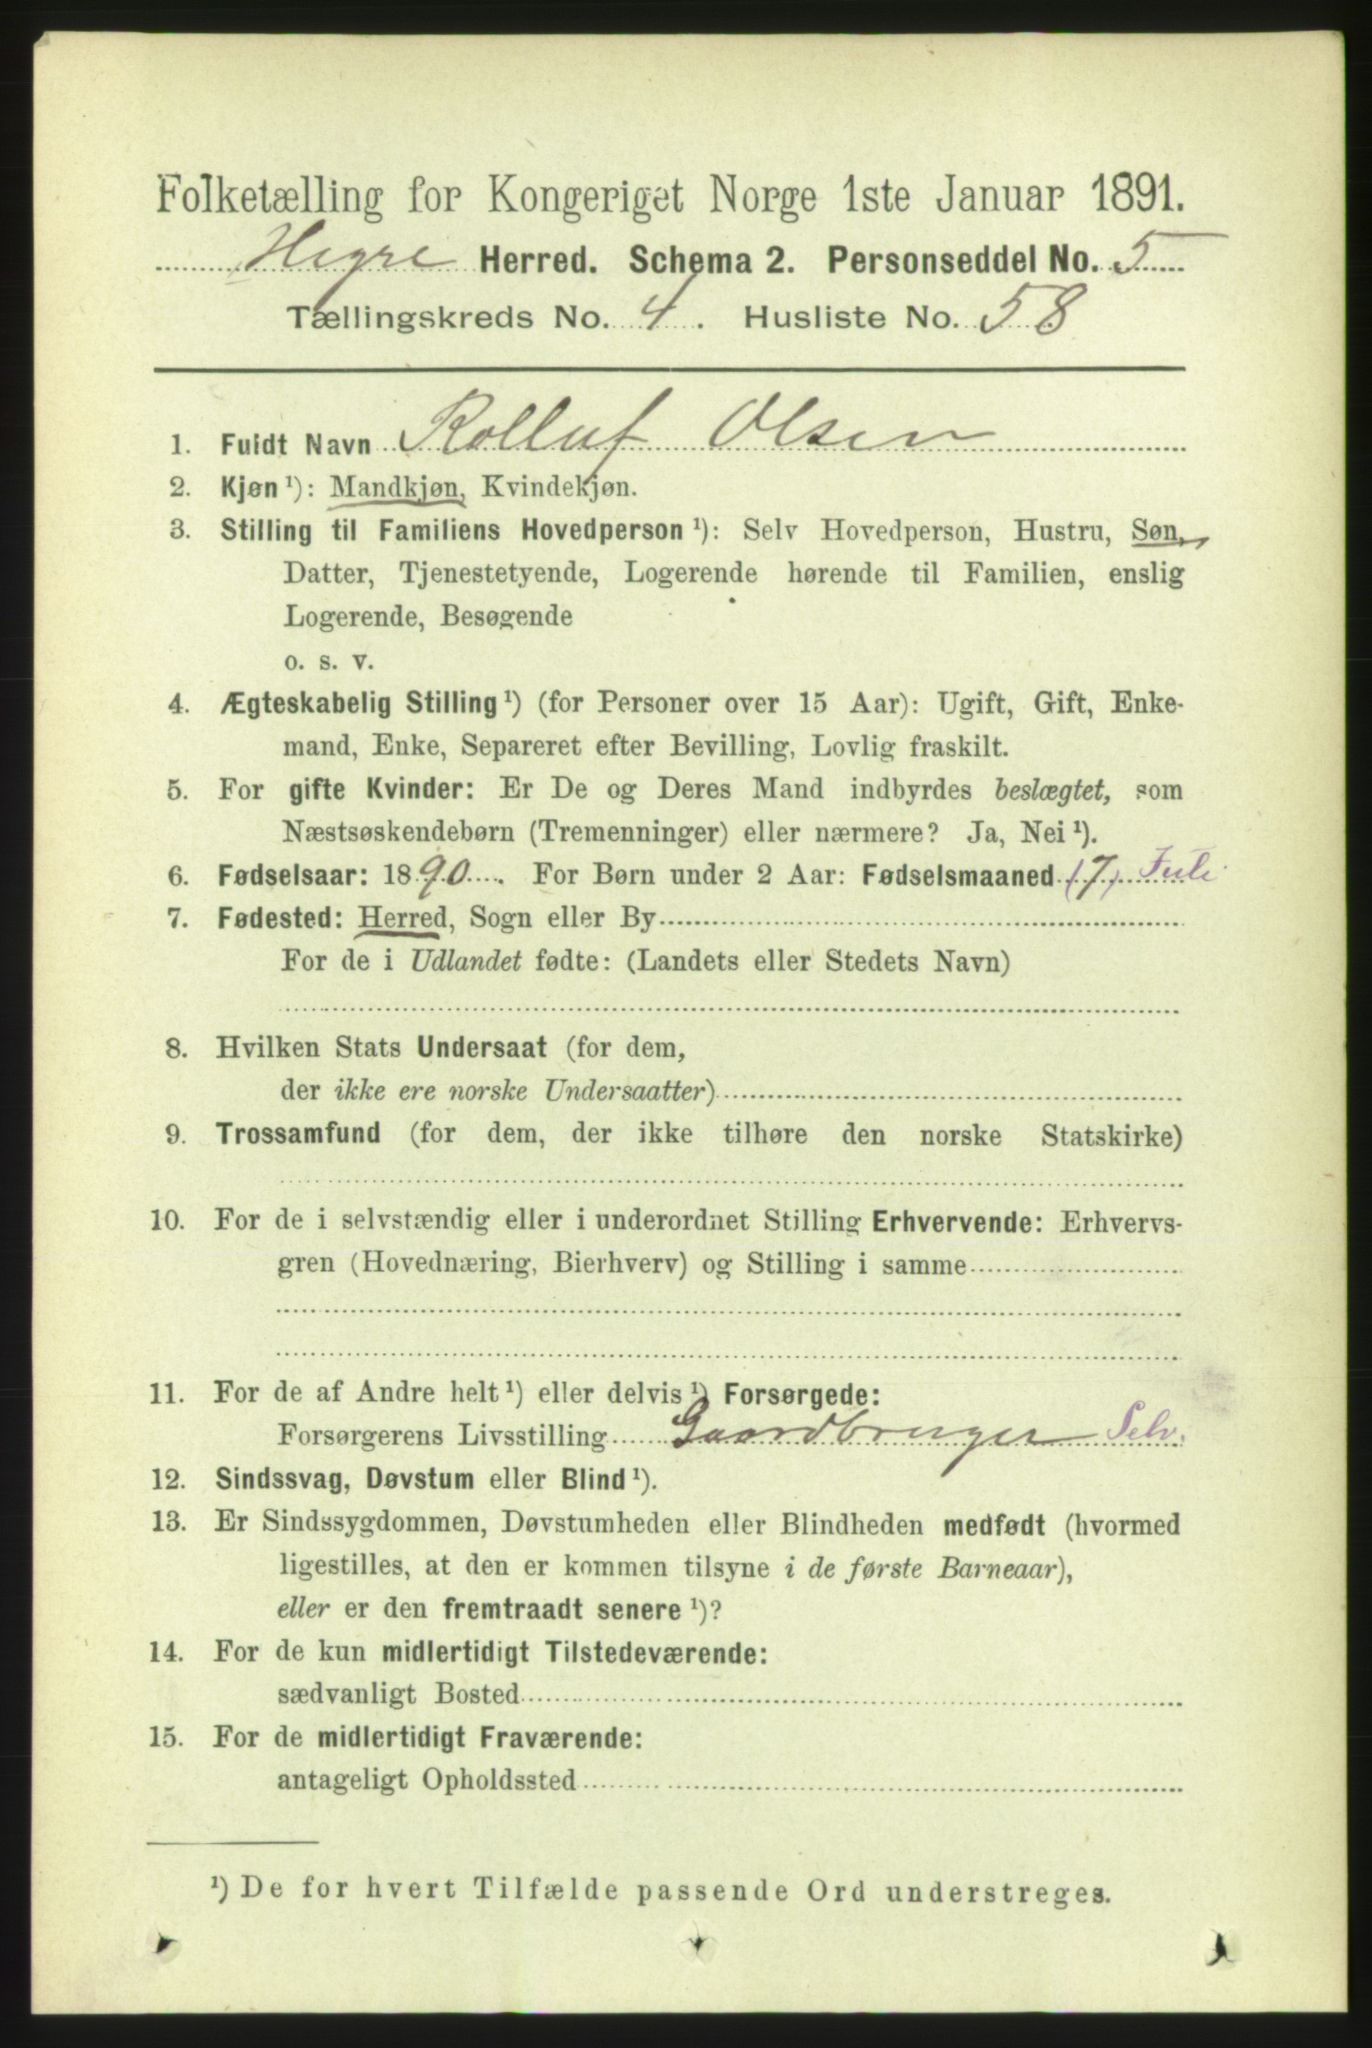 Folketælling for Kongeriget Norge 1ste Januar 1891.
Hegre Herred. Schema 2. Personseddel No. 5
Tællingskreds No. 4. Husliste No. 58
1. Fuldt Navn Rolluf Olsen
2. Kjøn ¹): Mandkjøn, Kvindekjøn.
3. Stilling til Familiens Hovedperson ¹): Selv Hovedperson, Hustru, Søn,
Datter, Tjenestetyende, Logerende hørende til Familien, enslig
Logerende, Besøgende
o. s. v.
4. Ægteskabelig Stilling ¹) (for Personer over 15 Aar): Ugift, Gift, Enke-
mand, Enke, Separeret efter Bevilling, Lovlig fraskilt.
5. For gifte Kvinder: Er De og Deres Mand indbyrdes beslægtet, som
Næstsøskendebørn (Tremenninger) eller nærmere? Ja, Nei ¹).
6. Fødselsaar: 1890. For Børn under 2 Aar: Fødselsmaaned (7) Juli
7. Fødested: Herred, Sogn eller By
For de i Udlandet fødte: (Landets eller Stedets Navn)
8. Hvilken Stats Undersaat (for dem,
der ikke ere norske Undersaatter)
9. Trossamfund (for dem, der ikke tilhøre den norske Statskirke)
10. For de i selvstændig eller i underordnet Stilling Erhvervende: Erhvervs-
gren (Hovednæring, Bierhverv) og Stilling i samme
11. For de af Andre helt ¹) eller delvis ¹) Forsørgede:
Forsørgerens Livsstilling Gaardbruger Selv.
12. Sindssvag, Døvstum eller Blind ¹).
13. Er Sindssygdommen, Døvstumheden eller Blindheden medfødt (hvormed
ligestilles, at den er kommen tilsyne i de første Barneaar),
eller er den fremtraadt senere ¹)?
14. For de kun midlertidigt Tilstedeværende:
sædvanligt Bosted
15. For de midlertidigt Fraværende:
antageligt Opholdssted
¹) De for hvert Tilfælde passende Ord understreges.